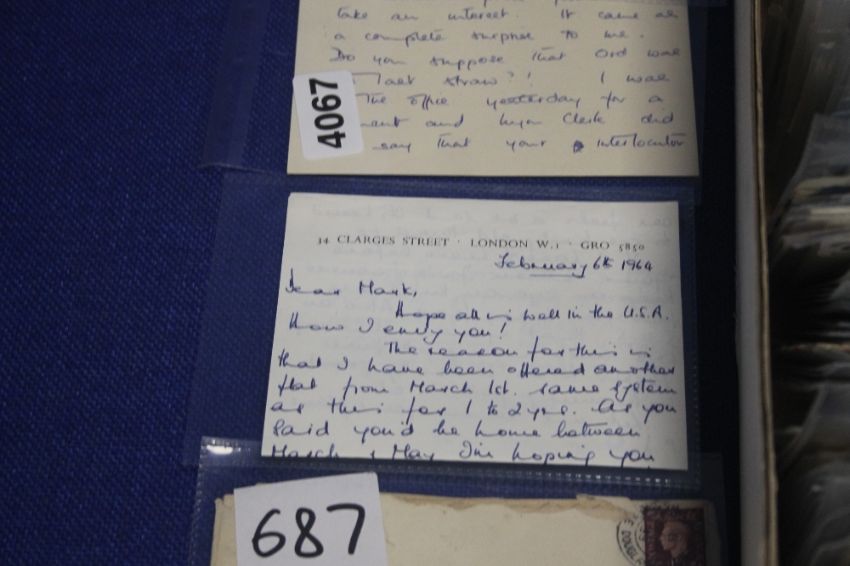 take an interest. It came as
a complete surprise to me.
Do you suppose that Ord was
last straw?! I was
The office yesterday for a
and Clerk did
say that your interlocutor
4067
34 CLARGES STREET · LONDON W.1 · GRO 5850
February 6th 1964
Dear Mark,
Hope all is well in the U.S.A.
How I envy you!
The reason for this is
that I have been offered another
flat from March 1st. same system
as this for 1 to 2 yrs. As you
said you'd be home between
March & May I'm hoping you
687